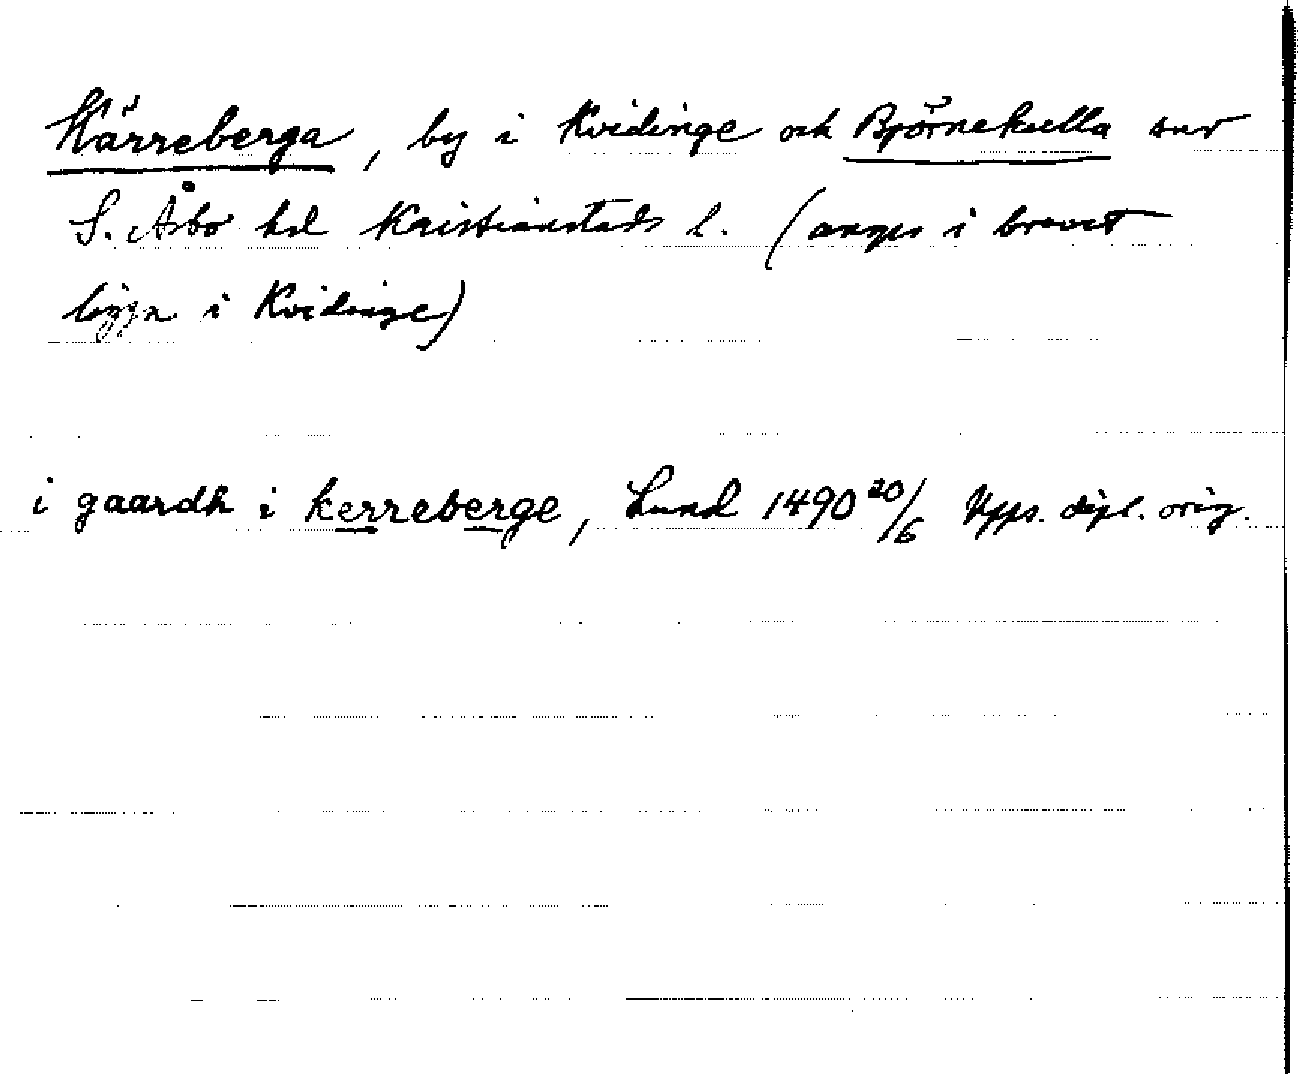 Kärreberga, by i Kvidinge och Björnekulla snr
S. Åsbo hd Kristianstads l. (anges i brevet
ligga i Kvidinge)
i gaardh i kerreberge, Lund 1490 20/6 Upps. dipl. orig.